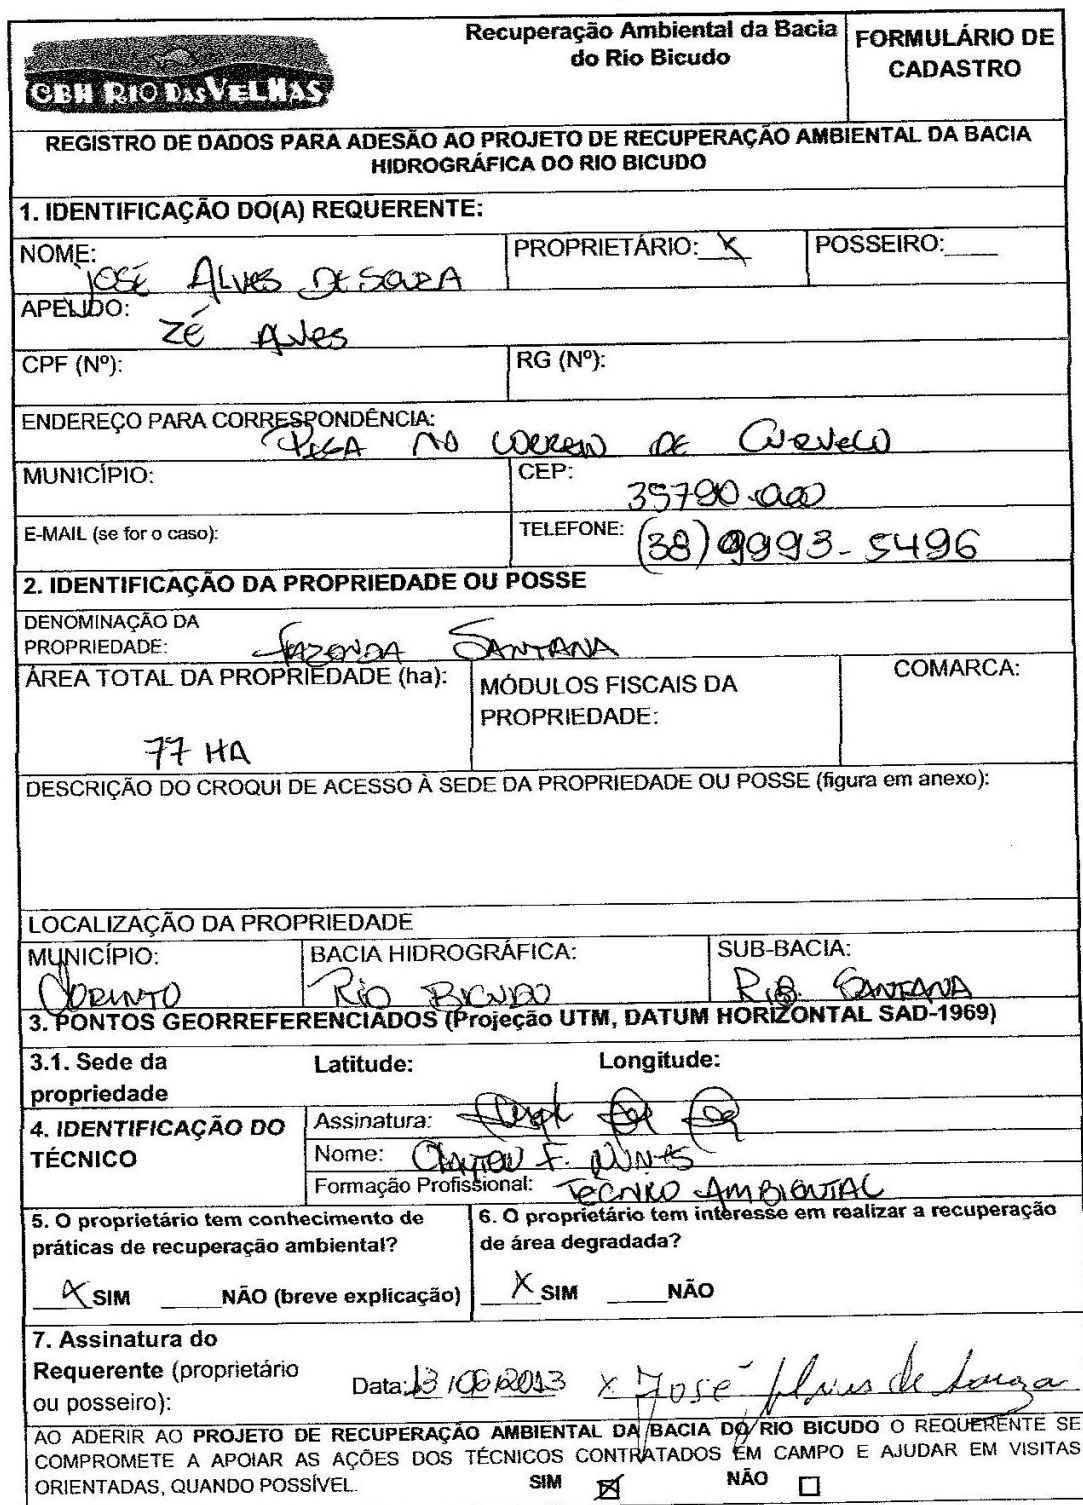 CBH RIO DAS VELHAS
Recuperação Ambiental da Bacia
do Rio Bicudo
FORMULÁRIO DE
CADASTRO
REGISTRO DE DADOS PARA ADESÃO AO PROJETO DE RECUPERAÇÃO AMBIENTAL DA BACIA
HIDROGRÁFICA DO RIO BICUDO
1. IDENTIFICAÇÃO DO(A) REQUERENTE:
NOME: JOSÉ ALVES DE SOUZA
PROPRIETÁRIO: X
POSSEIRO:____
APELIDO: ZÉ ALVES
CPF (Nº):
RG (Nº):
ENDEREÇO PARA CORRESPONDÊNCIA:
PEGA NO CORREIO DE CURVELO
MUNICÍPIO:
CEP: 35790.000
E-MAIL (se for o caso):
TELEFONE: (38) 9993-5496
2. IDENTIFICAÇÃO DA PROPRIEDADE OU POSSE
DENOMINAÇÃO DA
PROPRIEDADE: FAZENDA SANTANA
ÁREA TOTAL DA PROPRIEDADE (ha):
77 HA
MÓDULOS FISCAIS DA
PROPRIEDADE:
COMARCA:
DESCRIÇÃO DO CROQUI DE ACESSO À SEDE DA PROPRIEDADE OU POSSE (figura em anexo):
LOCALIZAÇÃO DA PROPRIEDADE
MUNICÍPIO:
CORINTO
BACIA HIDROGRÁFICA:
RIO BICUDO
SUB-BACIA:
RIB. SANTANA
3. PONTOS GEORREFERENCIADOS (Projeção UTM, DATUM HORIZONTAL SAD-1969)
3.1. Sede da
propriedade
Latitude:
Longitude:
4. IDENTIFICAÇÃO DO
TÉCNICO
Assinatura:
Nome: CLAYTON F. NUNES
Formação Profissional: TÉCNICO AMBIENTAL
5. O proprietário tem conhecimento de
práticas de recuperação ambiental?
X SIM ____NÃO (breve explicação)
6. O proprietário tem interesse em realizar a recuperação
de área degradada?
X SIM ____NÃO
7. Assinatura do
Requerente (proprietário
ou posseiro):
Data: 13/06/2013 x José Alves de Souza
AO ADERIR AO PROJETO DE RECUPERAÇÃO AMBIENTAL DA BACIA DO RIO BICUDO O REQUERENTE SE
COMPROMETE A APOIAR AS AÇÕES DOS TÉCNICOS CONTRATADOS EM CAMPO E AJUDAR EM VISITAS
ORIENTADAS, QUANDO POSSÍVEL. SIM ☒ NÃO ☐